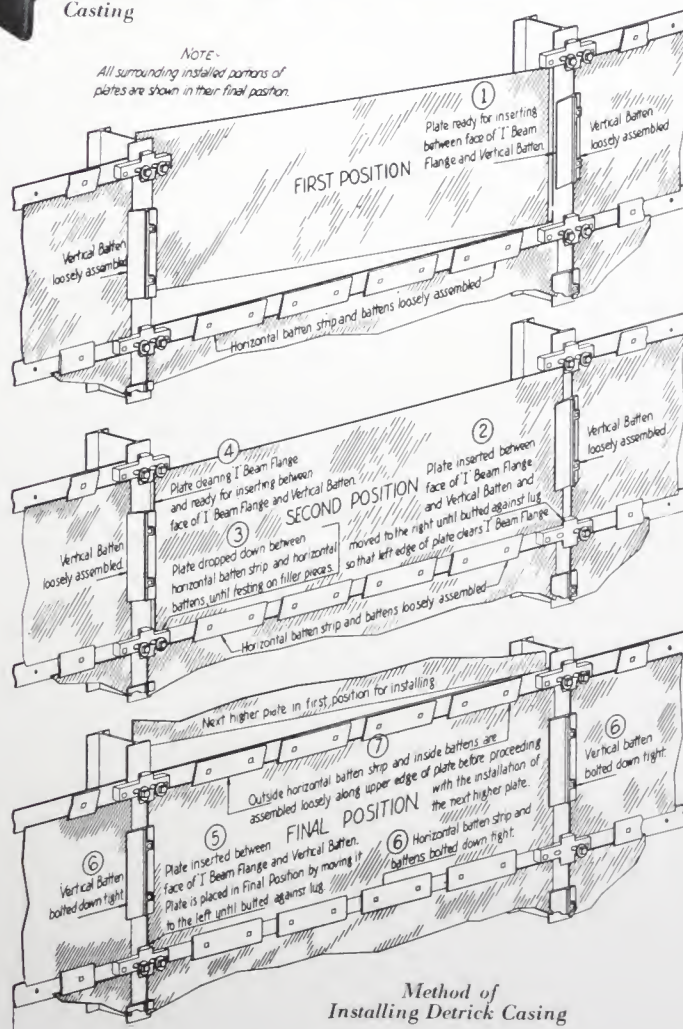 Casting
NOTE-
All surrounding installed portions of
plates are shown in their final position.
①
Plate ready for inserting
between face of "I" Beam
Flange and Vertical Batten.
Vertical Batten
loosely assembled
FIRST POSITION
Vertical Batten
loosely assembled
Horizontal batten strip and battens loosely assembled
④
Plate clearing "I" Beam Flange
and ready for inserting between
face of "I" Beam Flange and Vertical Batten.
②
Plate inserted between
face of "I" Beam Flange
and Vertical Batten and
moved to the right until butted against lug
so that left edge of plate clears "I" Beam Flange
Vertical Batten
loosely assembled.
SECOND POSITION
③
Plate dropped down between
horizontal batten strip and horizontal
battens, until resting on filler pieces.
Vertical Batten
loosely assembled.
Horizontal batten strip and battens loosely assembled
Next higher plate in first position for installing
⑦
Outside horizontal batten strip and inside battens are
assembled loosely along upper edge of plate before proceeding
with the installation of
the next higher plate.
⑥
Vertical batten
bolted down tight.
FINAL POSITION
⑤
Plate inserted between
face of "I" Beam Flange and Vertical Batten.
Plate is placed in Final Position by moving it
to the left until butted against lug.
⑥ Horizontal batten strip and
battens bolted down tight.
⑥
Vertical Batten
bolted down tight
Method of
Installing Detrick Casing